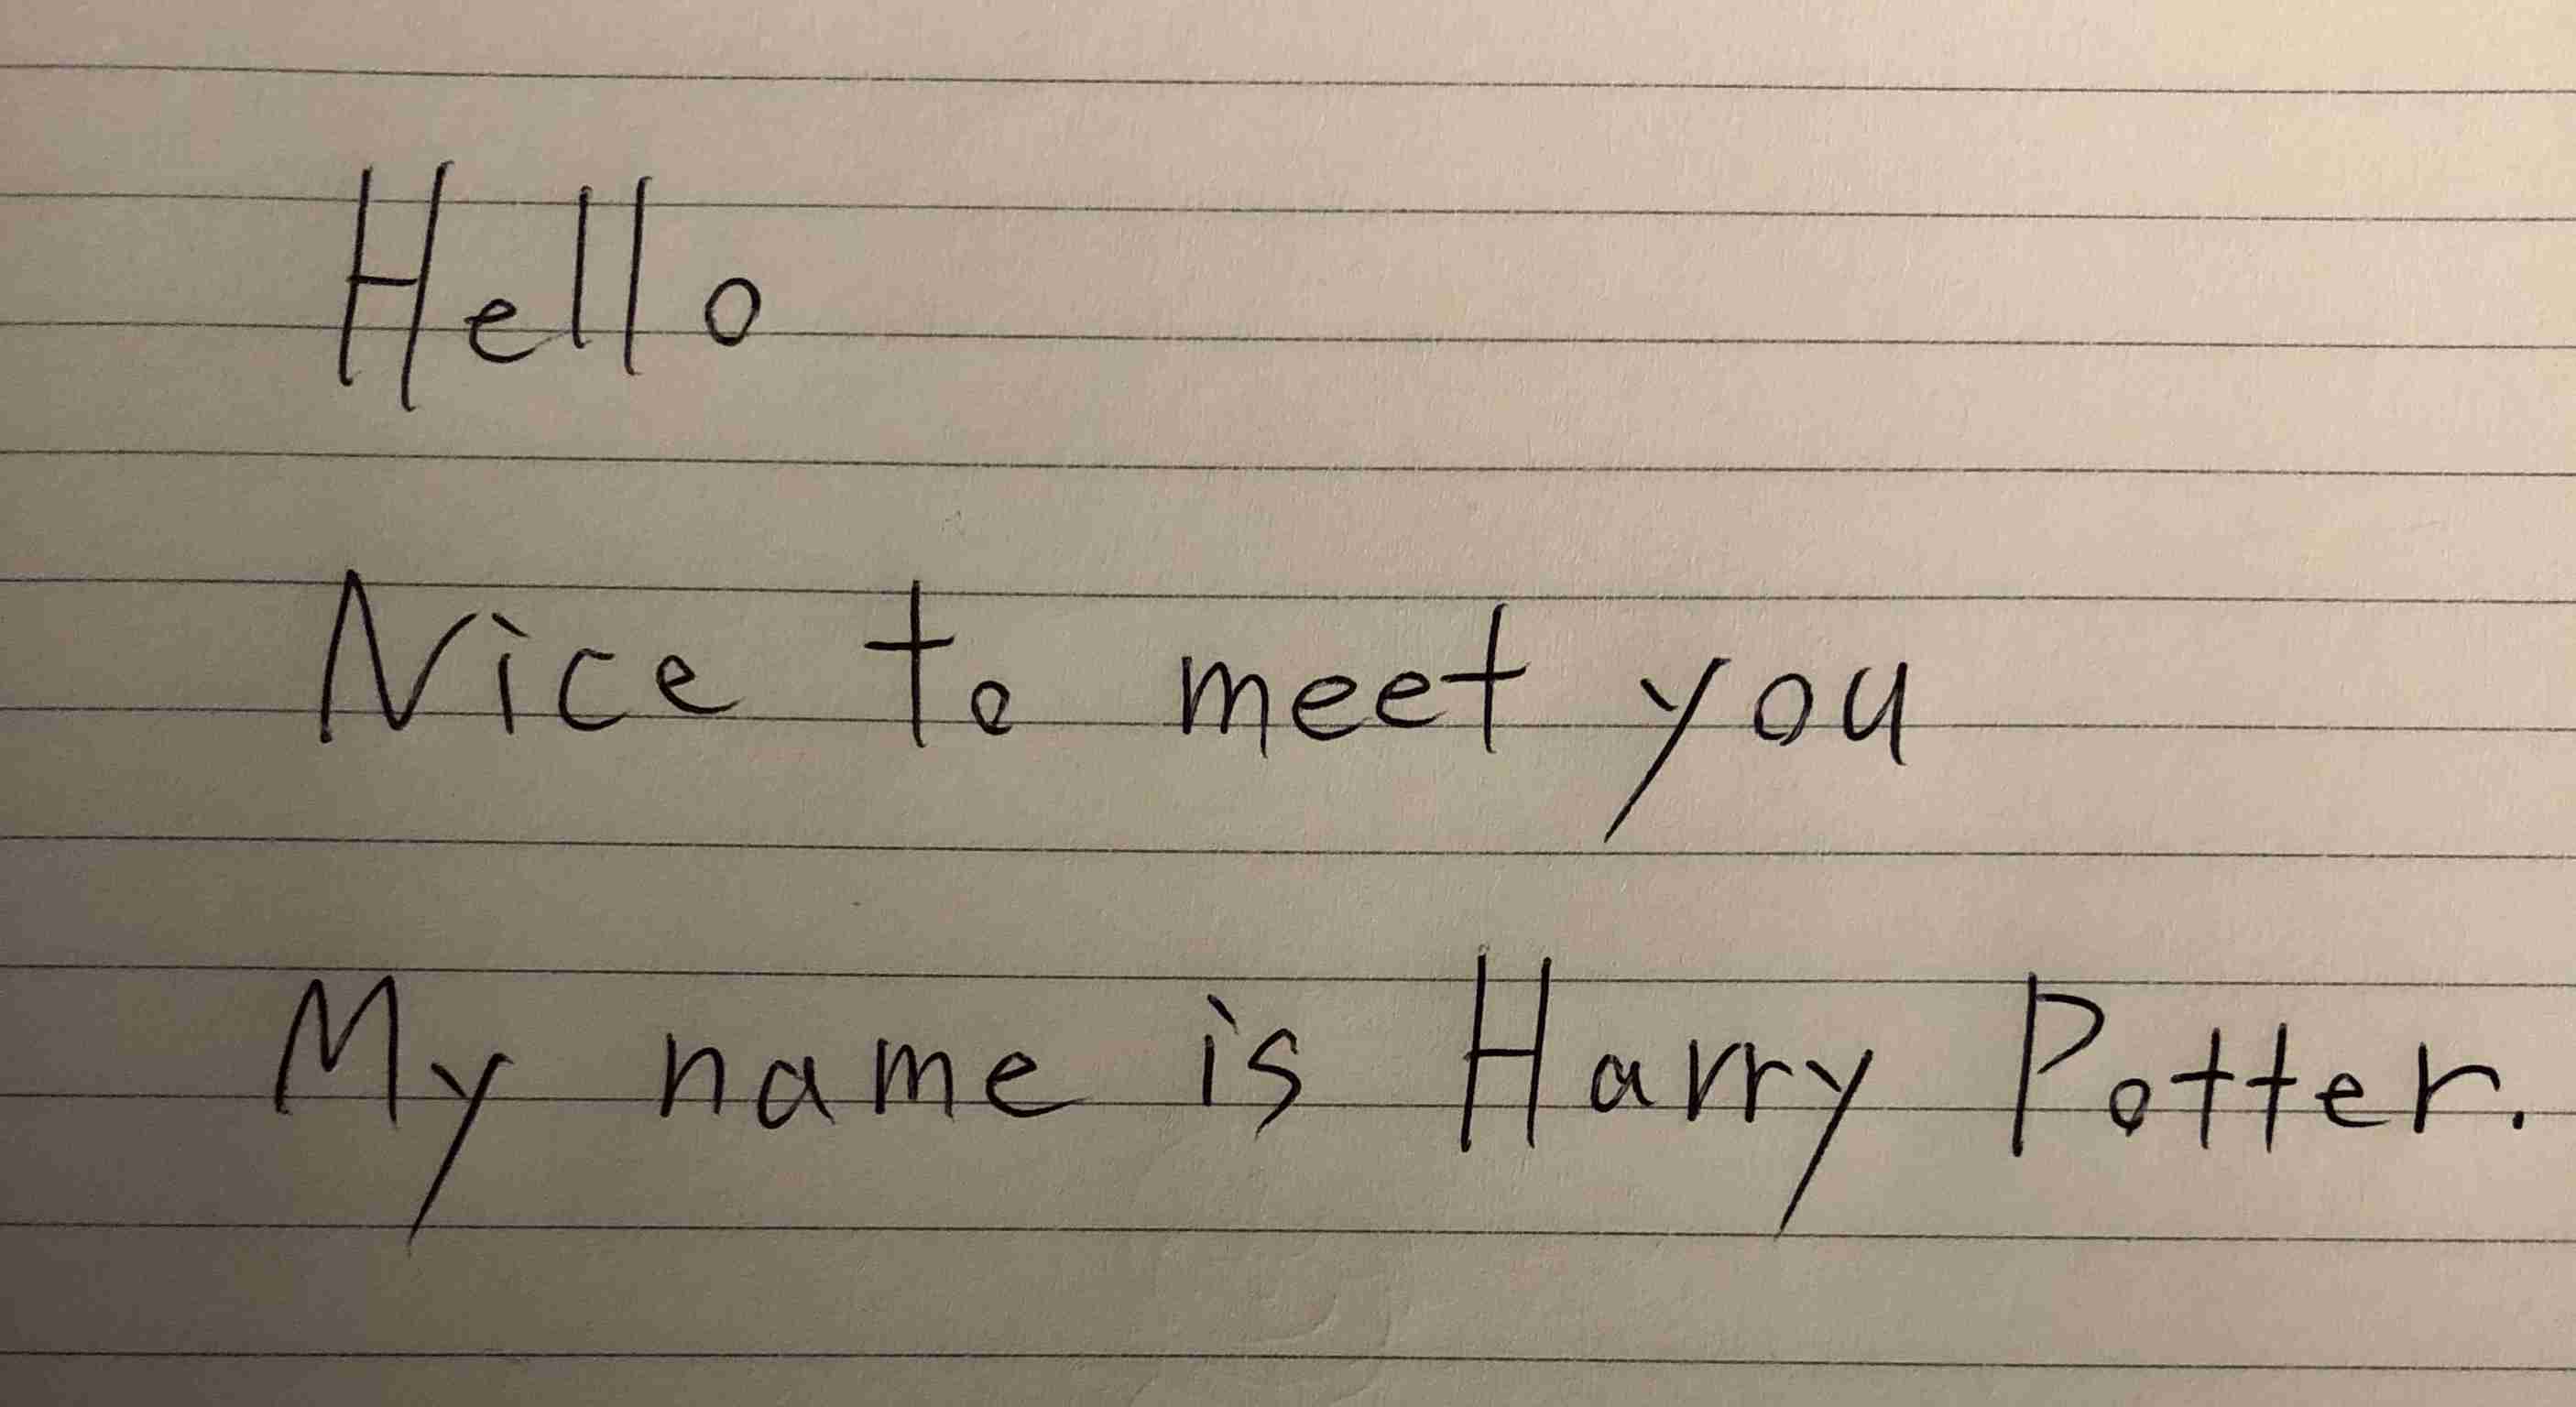 Hello
Nice to meet you
My name is Harry Potter.